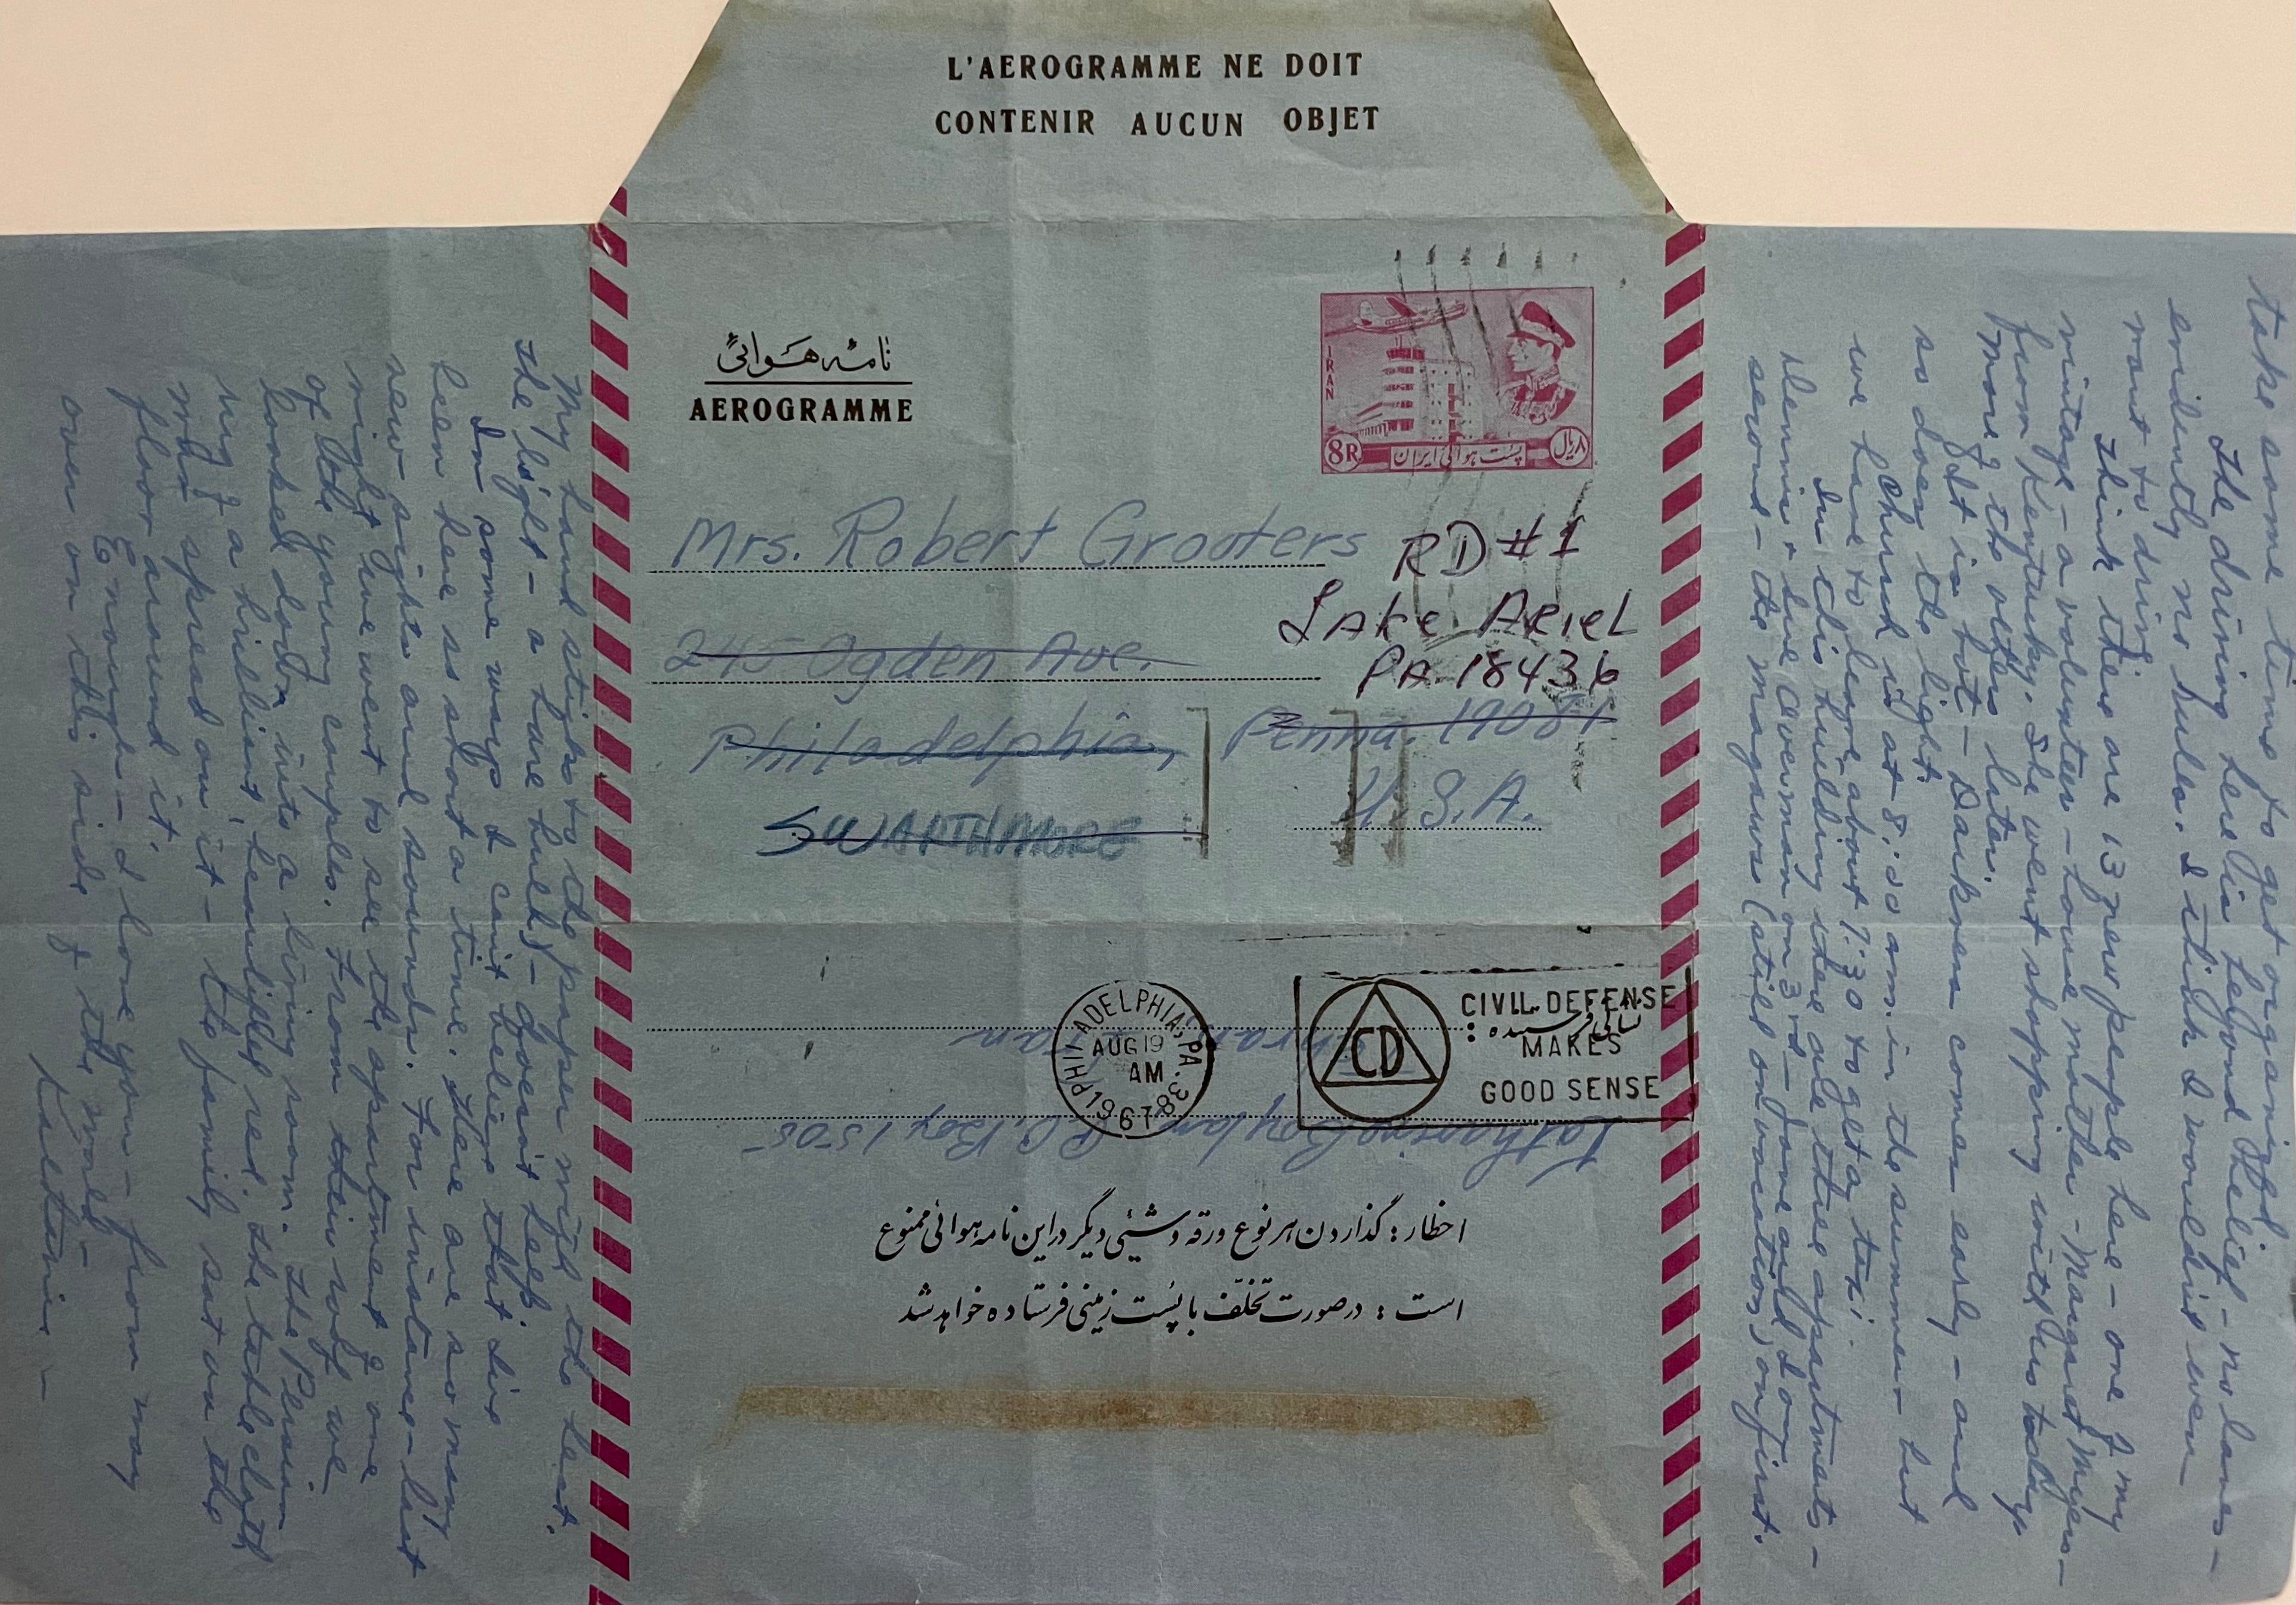 L'AEROGRAMME NE DOIT
CONTENIR AUCUN OBJET
نامهٔ هوائی
AEROGRAMME
IRAN
8R
پست هوائی ایران
۸ ریال
Mrs. Robert Grooters
RD #1
Lake Ariel
PA 18436
245 Ogden Ave.
Philadelphia, Penna. 19081
SWARTHMORE
U.S.A.
PHILADELPHIA, PA.
AUG 19
AM
1967
CD
CIVIL DEFENSE
MAKES
GOOD SENSE
Tehran, Iran
Katharine Boylan P.O. Box 1505
اخطار : گذاردن هر نوع ورقه و شیئی دیگر در این نامه هوائی ممنوع
است : در صورت تخلف با پست زمینی فرستاده خواهد شد
take some time to get organized
The driving here is beyond belief - no lanes -
evidently no rules. I think I wouldn't even
want to drive.
I think there are 13 new people here - one of my
vintage - a volunteer - house mother - Margaret Myers -
from Kentucky. She went shopping with us today.
More of the others later.
It is hot - Darkness comes early - and
so does the light.
Church is at 8:00 a.m. in the summer - but
we have to leave about 7:30 to get a taxi.
In this building there are three apartments -
Dennis & Sue Averman on 3rd - Jane and I on
second - the Magnus (still on vacation) on first.
My hand sticks to the paper with the heat.
The light - a bare bulb - doesn't help.
In some ways I can't believe that I've
been here so short a time. There are so many
new sights and sounds. For instance - last
night we went to see the apartment of one
of the young couples. From their roof we
looked down into a living room. The Persian
rug of a brilliant, beautiful red. The tablecloth
was spread on it - the family sat on the
floor around it.
Enough - I love you - from way
over on this side of the world -
Kaltarine -